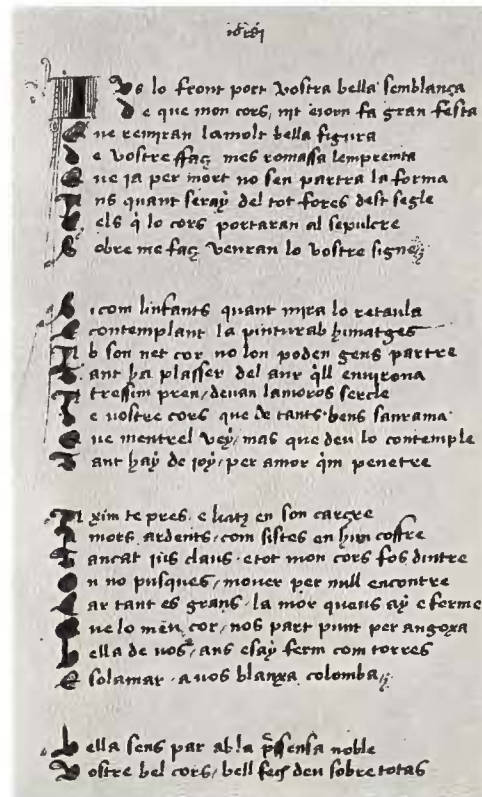 Jus lo front port vostra bella semblança
de que mon cors, nit ejorn fa gran festa
que remiran lamolt bella figura
de vostre ffaç mes romassa lempremta
que ja per mort no sen partra la forma
ans quant seray del tot fores dest segle
cels q̄ lo cors portaran al sepulcre
sobre me faç veuran lo vostre signe
Si com linfants quant mira lo retaula
e contemplant la pinturab himatges
ab son net cor, no lon poden gens partre
tant ha plasser del aur q̄ll environa
atressim pren, devan lamoros sercle
de vostre cors que de tants bens sanrama
que mentrel vey, mas que deu lo contemple
tant hay de joy, per amor q̄m penetre
Axim te pres e liatz en son carçre
amors ardents, com sistes en hun coffre
tancat jus claus etot mon cors fos dintre
on no pusques, mover per null encontre
car tant es grans la mor queus ay eferme
que lo meu cor, nos part punt per angoxa
bella de vos, ans esay ferm com torres
e solamar a vos blanxa colomba
bella sens par abla p̄ssensa noble
vostre bel cors, bell fech deu sobre totas